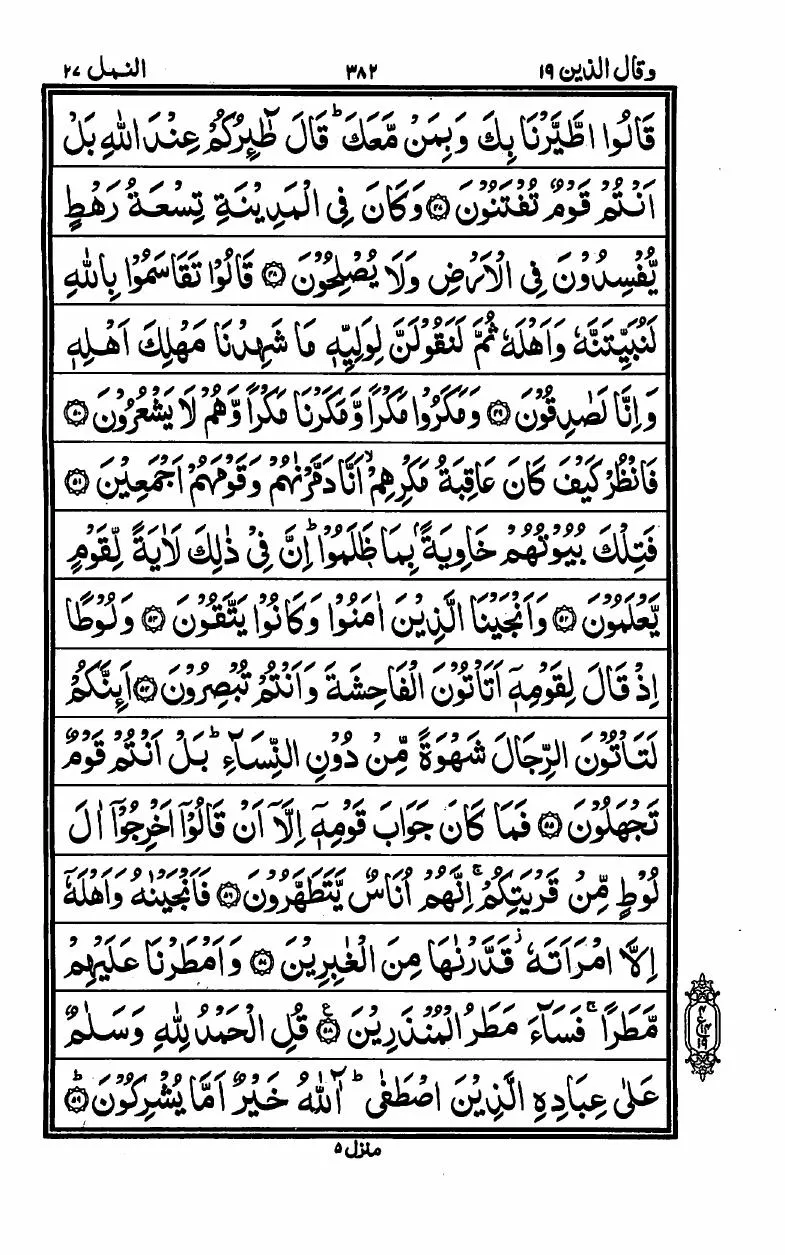 وقال الذين ١٩
٣٨٢
النمل ٢٧
قَالُوا اطَّيَّرْنَا بِكَ وَبِمَنْ مَّعَكَ ؕ قَالَ طٰٓئِرُكُمْ عِنْدَ اللّٰهِ بَلْ
اَنْتُمْ قَوْمٌ تُفْتَنُوْنَ ﴿۴۷﴾ وَكَانَ فِی الْمَدِيْنَةِ تِسْعَةُ رَهْطٍ
يُّفْسِدُوْنَ فِی الْاَرْضِ وَلَا يُصْلِحُوْنَ ﴿۴۸﴾ قَالُوْا تَقَاسَمُوْا بِاللّٰهِ
لَنُبَيِّتَنَّهٗ وَاَهْلَهٗ ثُمَّ لَنَقُوْلَنَّ لِوَلِيِّهٖ مَا شَهِدْنَا مَهْلِكَ اَهْلِهٖ
وَاِنَّا لَصٰدِقُوْنَ ﴿۴۹﴾ وَمَكَرُوْا مَكْرًا وَّمَكَرْنَا مَكْرًا وَّهُمْ لَا يَشْعُرُوْنَ ﴿۵۰﴾
فَانْظُرْ كَيْفَ كَانَ عَاقِبَةُ مَكْرِهِمْ ۙ اَنَّا دَمَّرْنٰهُمْ وَقَوْمَهُمْ اَجْمَعِيْنَ ﴿۵۱﴾
فَتِلْكَ بُيُوْتُهُمْ خَاوِيَةًۢ بِمَا ظَلَمُوْا ؕ اِنَّ فِیْ ذٰلِكَ لَاٰيَةً لِّقَوْمٍ
يَّعْلَمُوْنَ ﴿۵۲﴾ وَاَنْجَيْنَا الَّذِيْنَ اٰمَنُوْا وَكَانُوْا يَتَّقُوْنَ ﴿۵۳﴾ وَلُوْطًا
اِذْ قَالَ لِقَوْمِهٖٓ اَتَاْتُوْنَ الْفَاحِشَةَ وَاَنْتُمْ تُبْصِرُوْنَ ﴿۵۴﴾ اَئِنَّكُمْ
لَتَاْتُوْنَ الرِّجَالَ شَهْوَةً مِّنْ دُوْنِ النِّسَآءِ ؕ بَلْ اَنْتُمْ قَوْمٌ
تَجْهَلُوْنَ ﴿۵۵﴾ فَمَا كَانَ جَوَابَ قَوْمِهٖٓ اِلَّاۤ اَنْ قَالُوْۤا اَخْرِجُوْۤا اٰلَ
لُوْطٍ مِّنْ قَرْيَتِكُمْ ۚ اِنَّهُمْ اُنَاسٌ يَّتَطَهَّرُوْنَ ﴿۵۶﴾ فَاَنْجَيْنٰهُ وَاَهْلَهٗٓ
اِلَّا امْرَاَتَهٗ ۫ قَدَّرْنٰهَا مِنَ الْغٰبِرِيْنَ ﴿۵۷﴾ وَاَمْطَرْنَا عَلَيْهِمْ
مَّطَرًا ۚ فَسَآءَ مَطَرُ الْمُنْذَرِيْنَ ﴿۵۸﴾ ع قُلِ الْحَمْدُ لِلّٰهِ وَسَلٰمٌ
عَلٰی عِبَادِهِ الَّذِيْنَ اصْطَفٰی ؕ آٰللّٰهُ خَيْرٌ اَمَّا يُشْرِكُوْنَ ﴿۵۹﴾ؕ
۴
ع۱۴
۱۹
منزل ۵